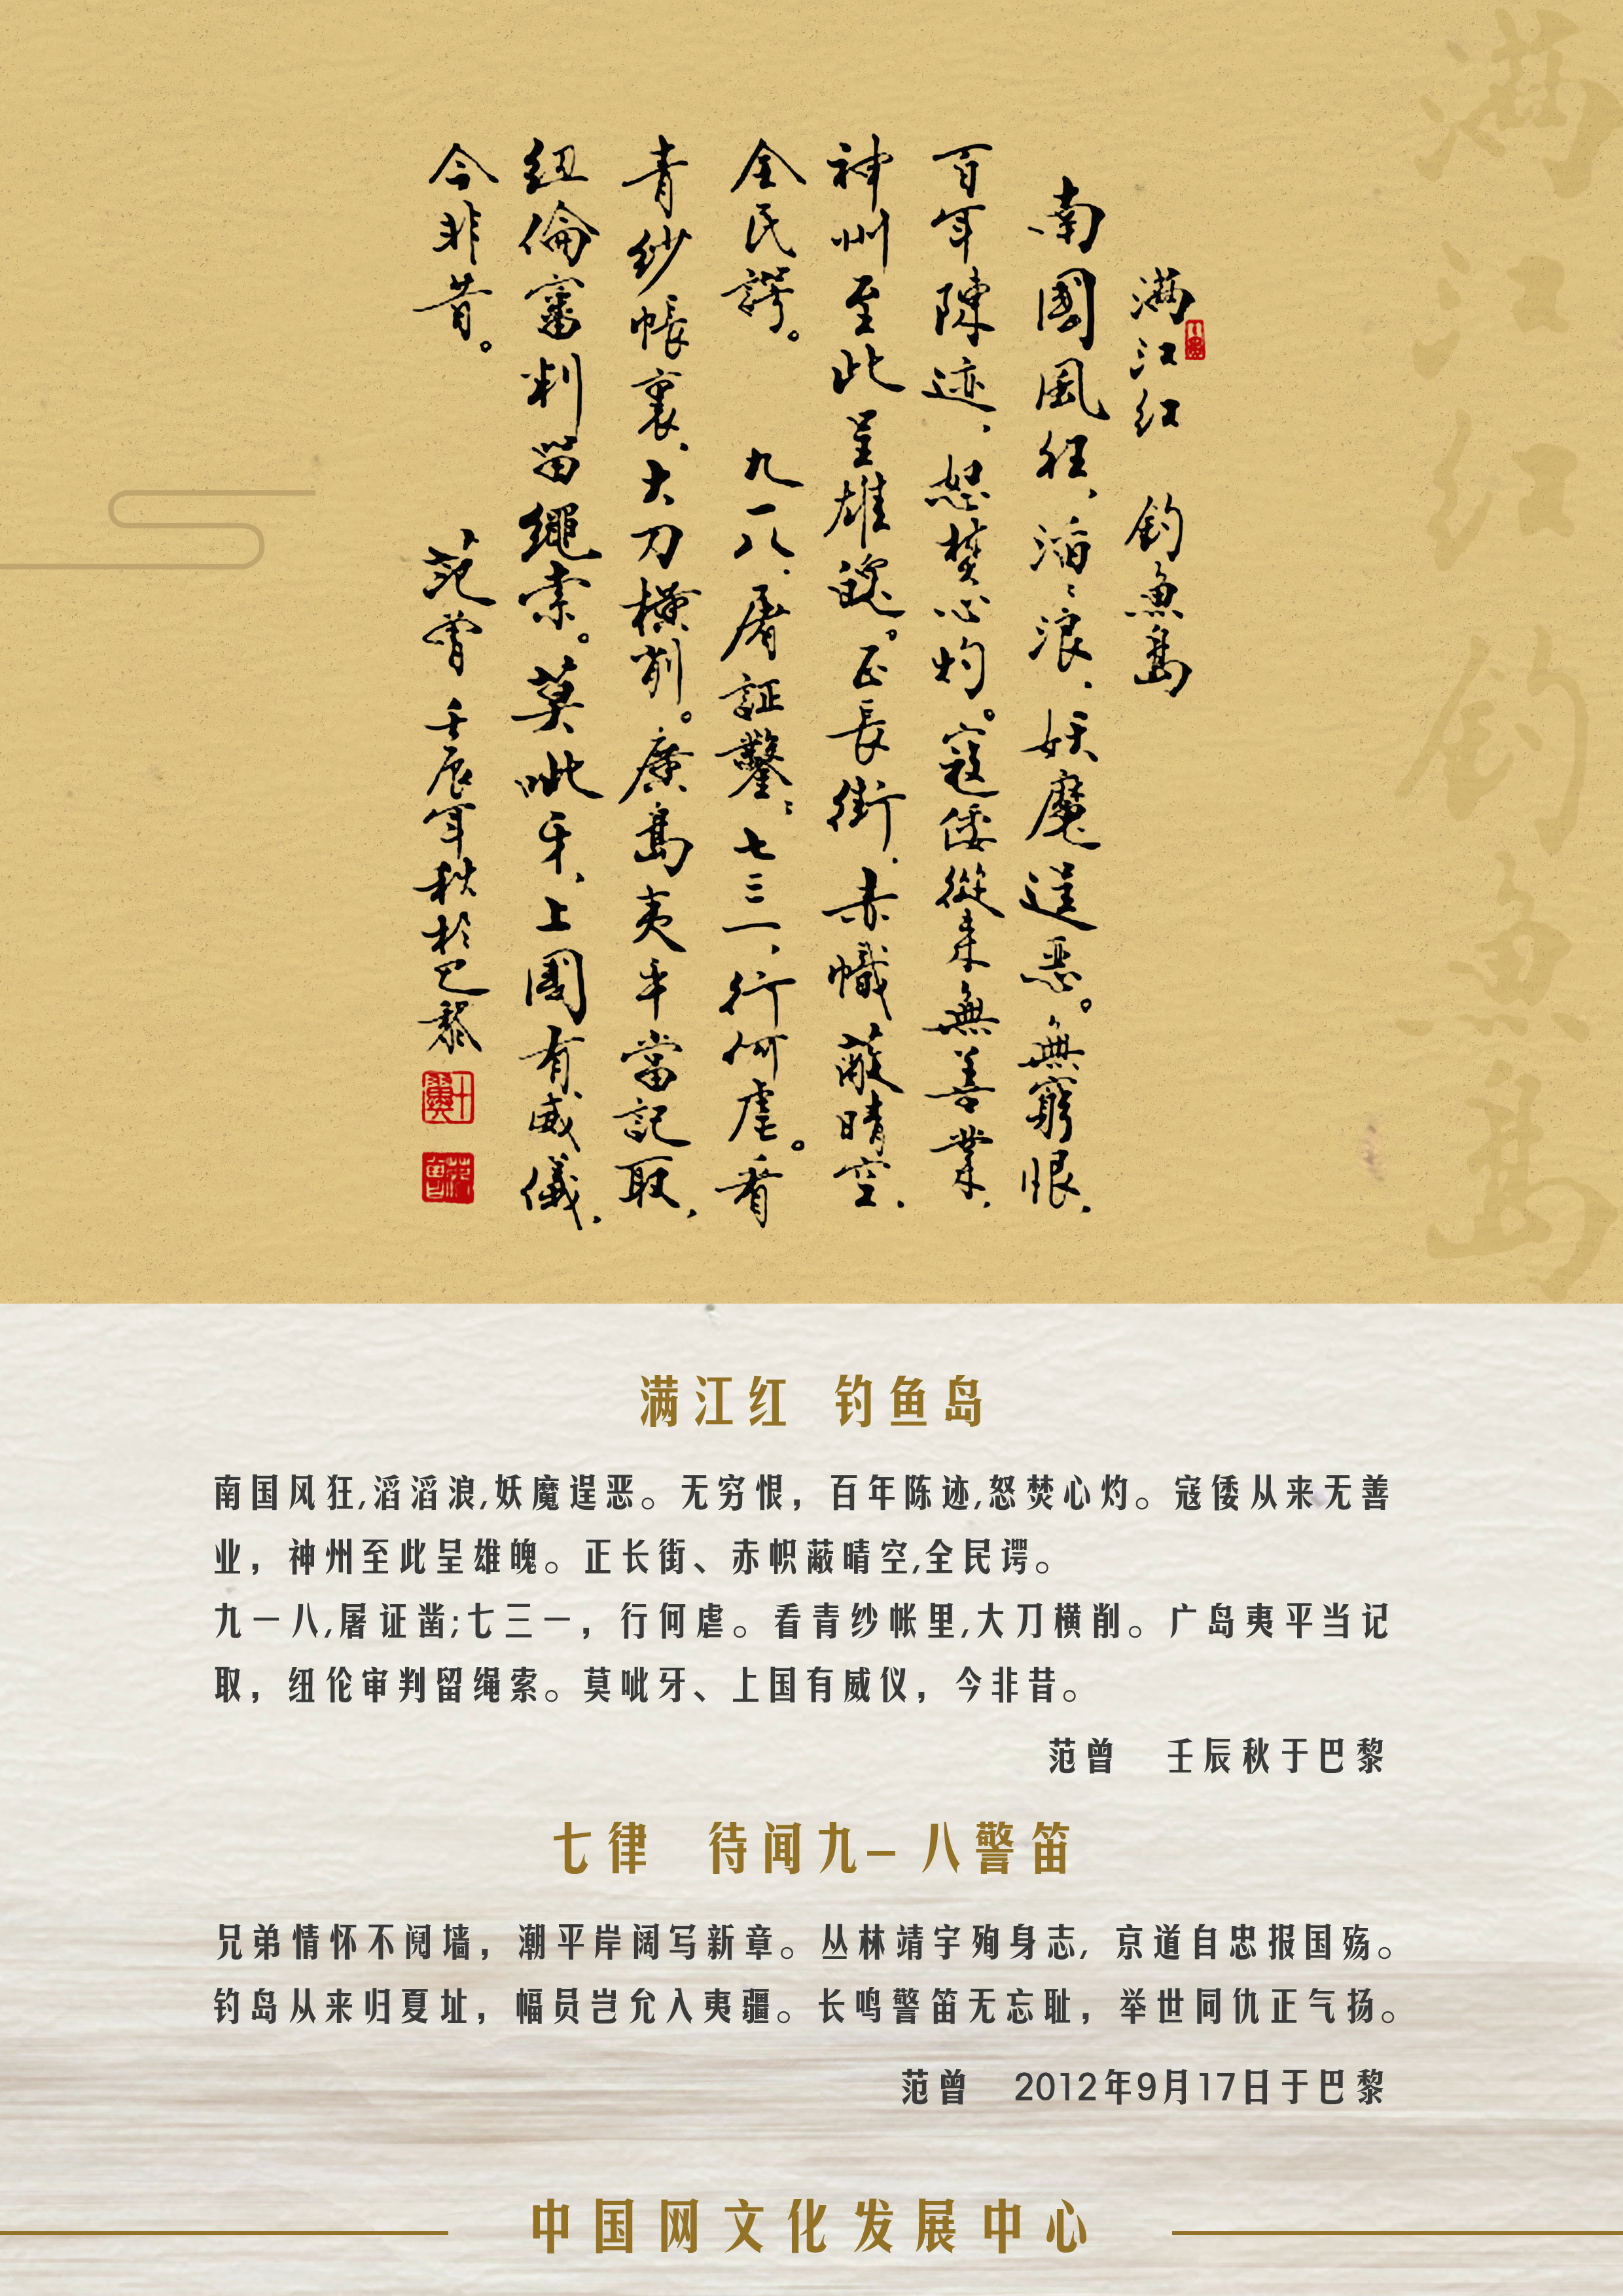 满江红 钓鱼岛
满江红 釣魚島
南國風狂、滔〻浪、妖魔逞恶。無窮恨、
百年陳迹、怒焚心灼。寇倭從来無善業、
神州至此呈雄魄。正長街、赤幟蔽晴空、
全民諤。 九一八、屠証鑿;七三一、行何虐。看
青纱帳裏、大刀横削。廣島夷平當記取、
纽倫審判留繩索。莫呲牙、上國有威儀、
今非昔。 范曾 壬辰年秋於巴黎
满江红 钓鱼岛
南国风狂,滔滔浪,妖魔逞恶。无穷恨，百年陈迹,怒焚心灼。寇倭从来无善
业，神州至此呈雄魄。正长街、赤帜蔽晴空,全民谔。
九一八,屠证凿;七三一，行何虐。看青纱帐里,大刀横削。广岛夷平当记
取，纽伦审判留绳索。莫呲牙、上国有威仪，今非昔。
范曾 壬辰秋于巴黎
七律 待闻九一八警笛
兄弟情怀不阋墙，潮平岸阔写新章。丛林靖宇殉身志，京道自忠报国殇。
钓岛从来归夏址，幅员岂允入夷疆。长鸣警笛无忘耻，举世同仇正气扬。
范曾 2012年9月17日于巴黎
中国网文化发展中心